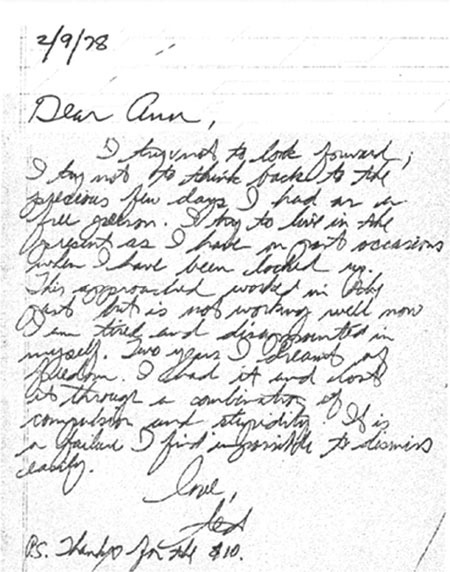 2/9/78
Dear Ann,
I try not to look forward;
I try not to think back to the
precious few days I had as a
free person. I try to live in the
present as I have on past occasions
when I have been locked up.
This approached worked in the
past but is not working well now
I am tired and disappointed in
myself. Two years I dreamt of
freedom. I had it and lost
it through a combination of
compulsion and stupidity. It is
a failure I find impossible to dismiss
easily.
love,
ted
P.S. Thanks for the $10.